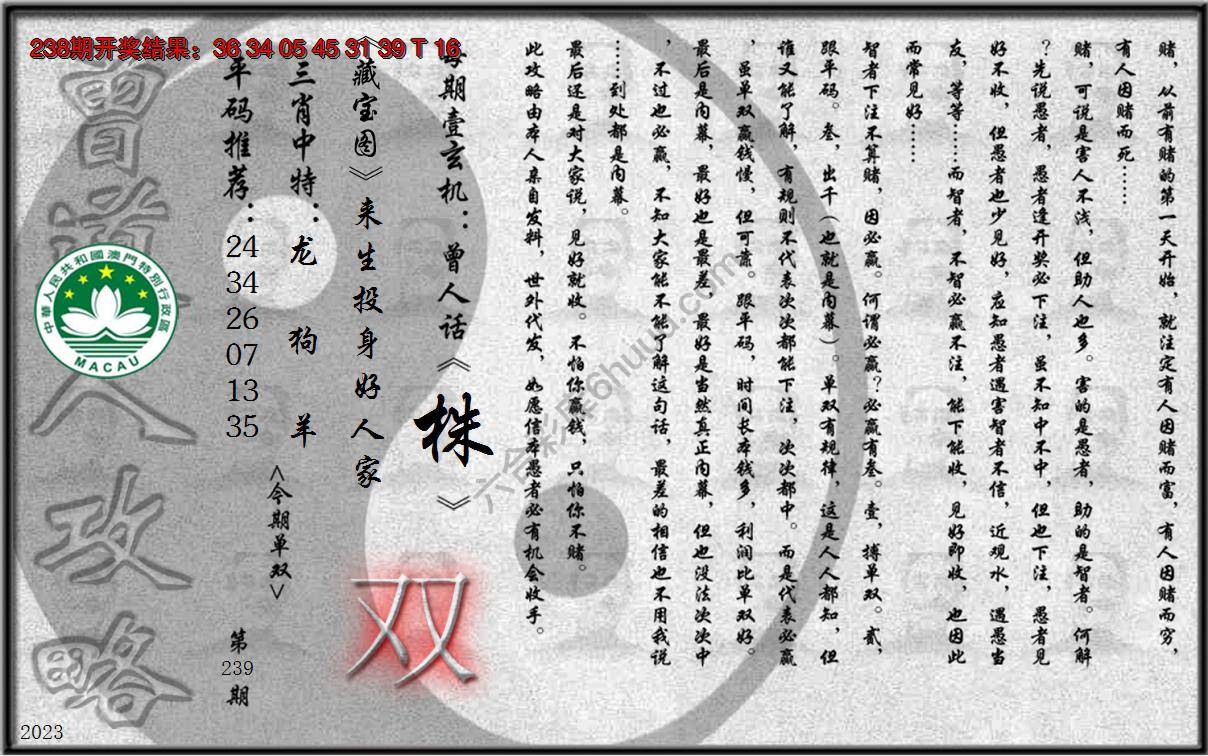 238期开奖结果：36 34 05 45 31 39 T 16
赌，从前有赌的第一天开始，就注定有人因赌而富，有人因赌而穷，
有人因赌而死……
赌，可说是害人不浅，但助人也多。害的是愚者，助的是智者。何解
？先说愚者，愚者逢开奖必下注，虽不知中不中，但也下注，愚者见
好不收，但愚者也少见好，应知愚者遇害智者不信，近观水，遇愚当
友，等等……而智者，不智必赢不注，能下能收，见好即收，也因此
而常见好……
智者下注不算赌，因必赢。何谓必赢？必赢有叁。壹，搏单双。贰，
跟平码。叁，出千（也就是内幕）。单双有规律，这是人人都知，但
谁又能了解，有规则不代表次次都能下注，次次都中。而是代表必赢
，虽单双赢钱慢，但可靠。跟平码，时间长本钱多，利润比单双好。
最后是内幕，最好也是最差，最好是当然真正内幕，但也没法次次中
，不过也必赢，不知大家能不能了解这句话，最差的相信也不用我说
……到处都是内幕。
最后还是对大家说，见好就收。不怕你赢钱，只怕你不赌。
此攻略由本人亲自发料，世外代发，如愿信本愚者必有机会收手。
每期壹玄机：曾人话《株》
《藏宝图》来生投身好人家
三肖中特：龙 狗 羊
平码推荐：24 34 26 07 13 35
<今期单双>
双
第239期
曾道人攻略
中華人民共和國澳門特別行政區
MACAU
2023